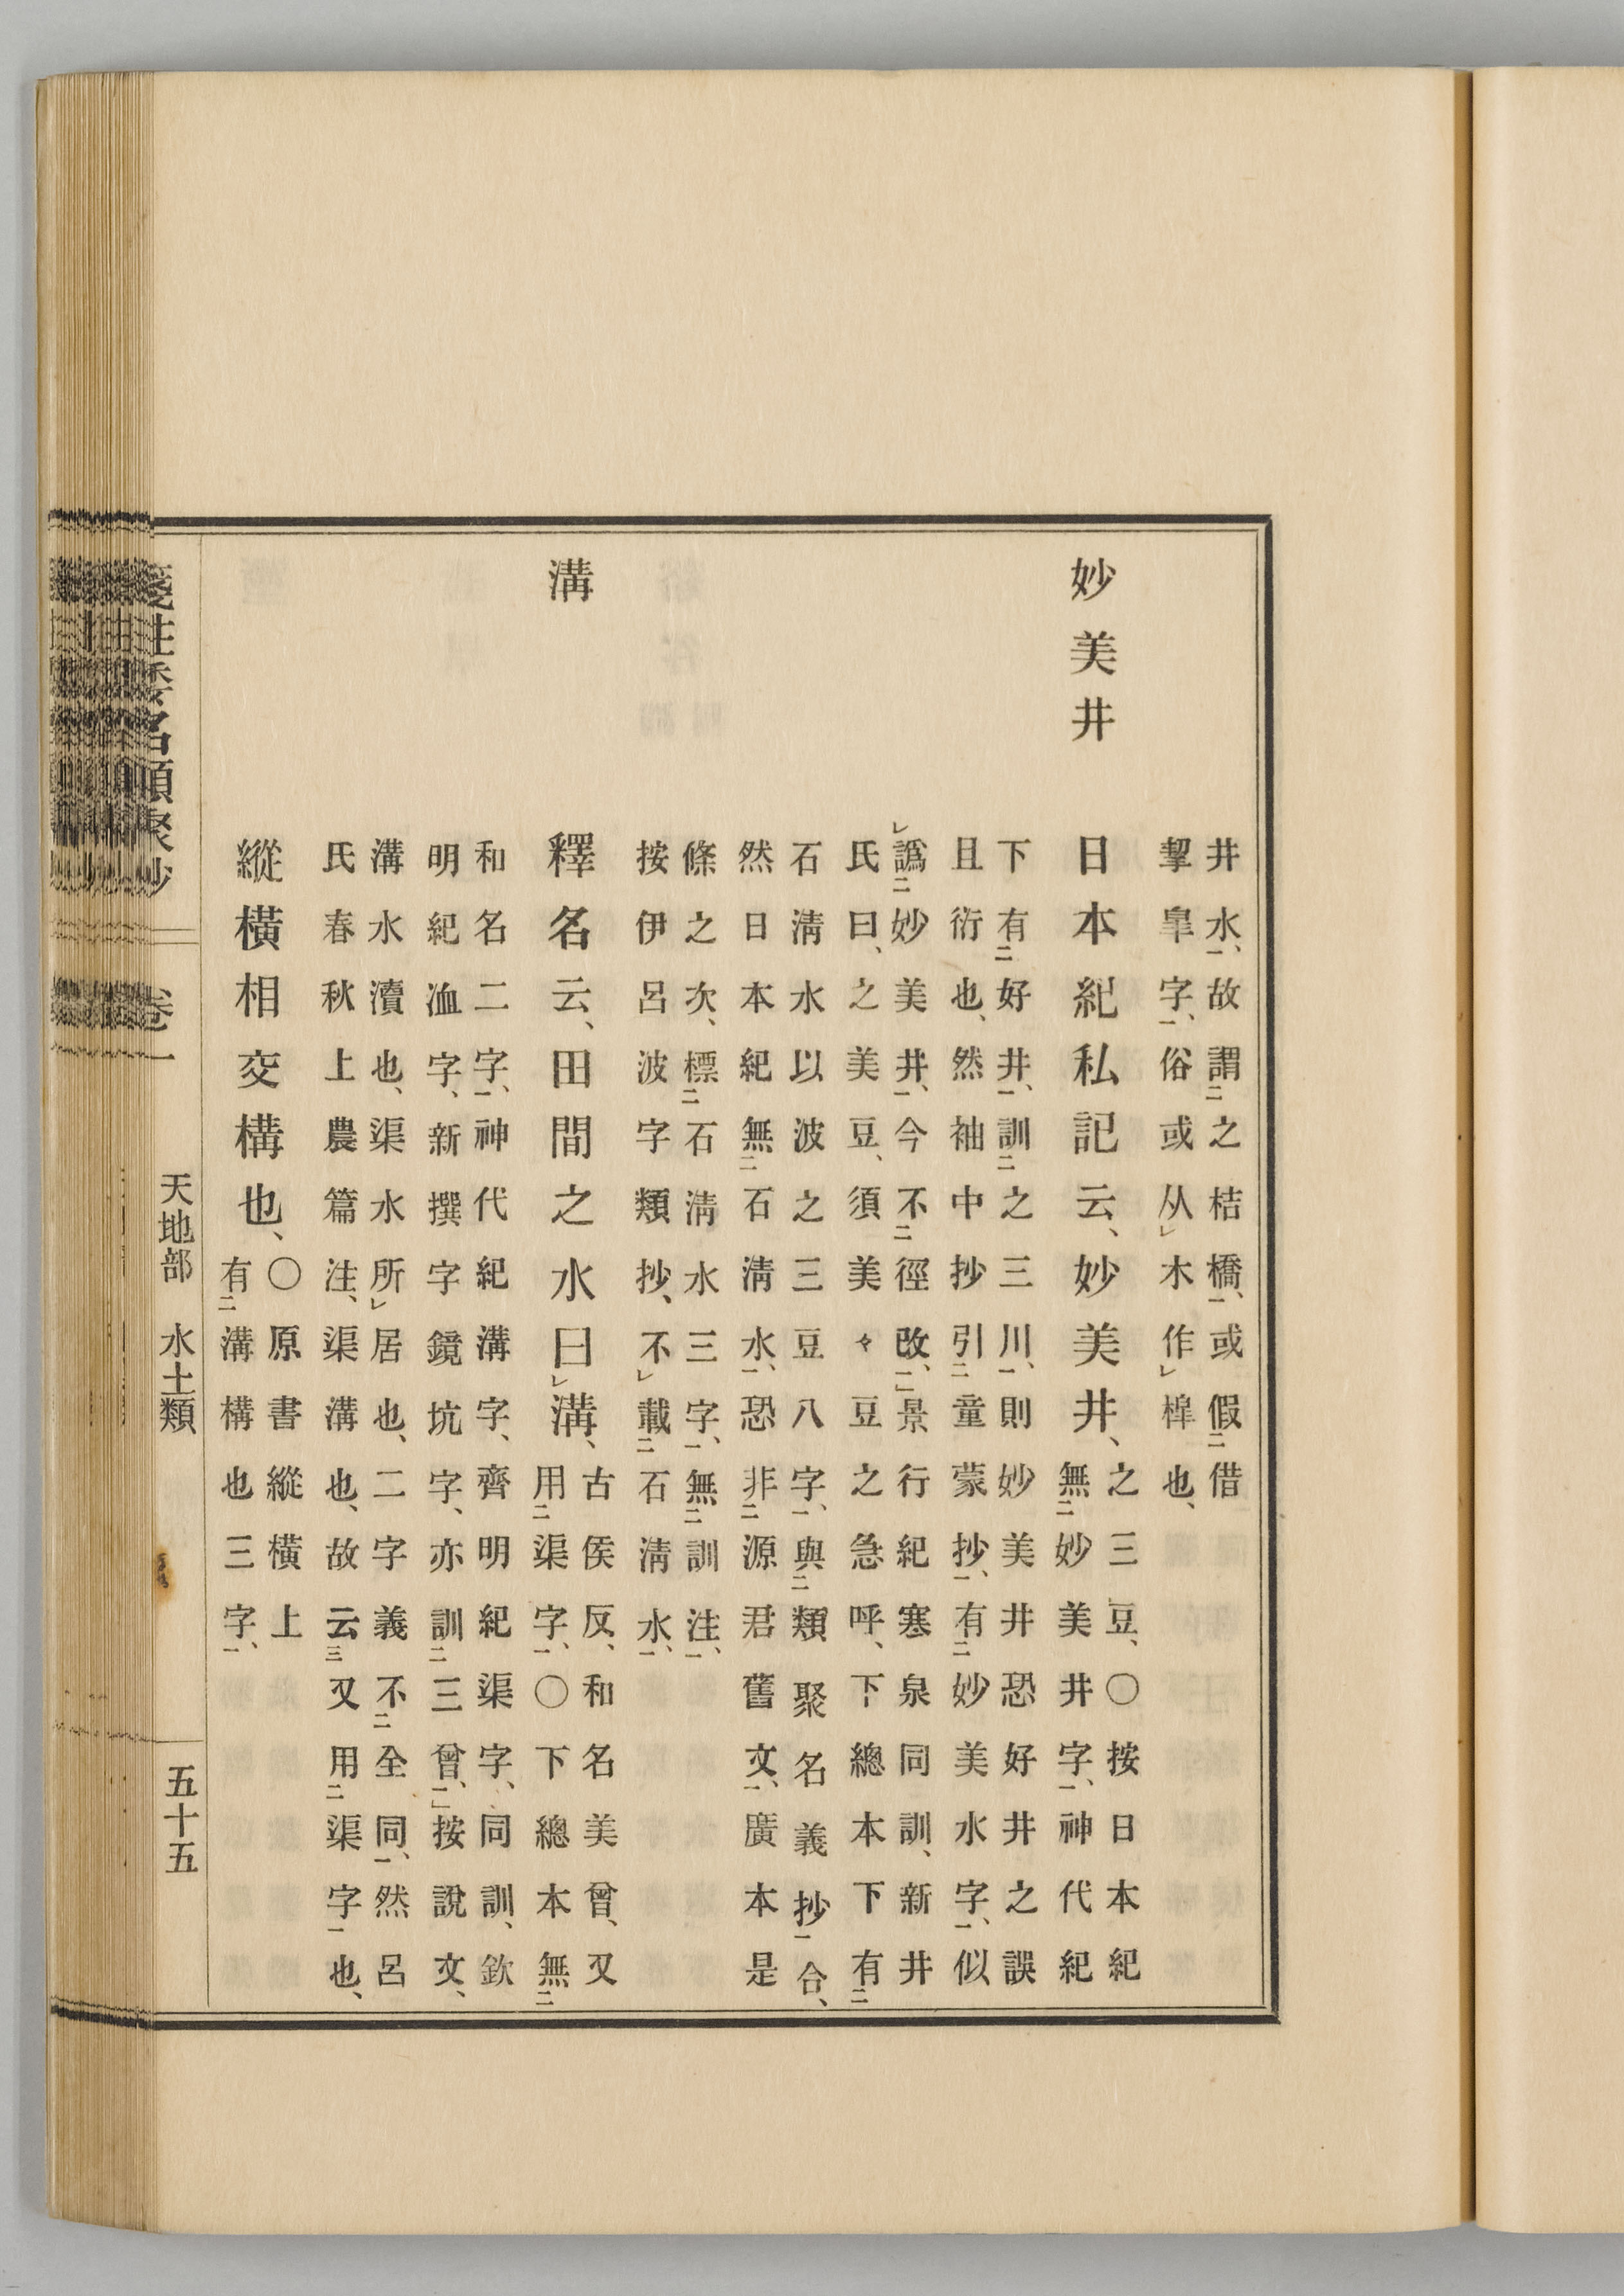 井水、故謂之桔橋、或假借
挈皐字、俗或从木作槹也、
妙美井
日本紀私記云、妙美井、之三豆、〇按日本紀
無妙美井字、神代紀
下有好井、訓之三川、則妙美井恐好井之誤
且衍也、然袖中抄引童蒙抄、有妙美水字、似
譌妙美井、今不徑改、景行紀寒泉同訓、新井
氏曰、之美豆、須美々豆之急呼、下總本下有
石淸水以波之三豆八字、與類聚名義抄合、
然日本紀無石淸水、恐非源君舊文、廣本是
條之次、標石淸水三字、無訓注、
按伊呂波字類抄、不載石淸水、
溝
釋名云、田間之水曰溝、古侯反、和名美曾、又
用渠字、〇下總本無
和名二字、神代紀溝字、齊明紀渠字、同訓、欽
明紀洫字、新撰字鏡坑字、亦訓三曾、按說文、
溝水瀆也、渠水所居也、二字義不全同、然呂
氏春秋上農篇注、渠溝也、故云又用渠字也、
縱橫相交構也、〇原書縱橫上
有溝構也三字、
卷一
天地部 水土類
五十五